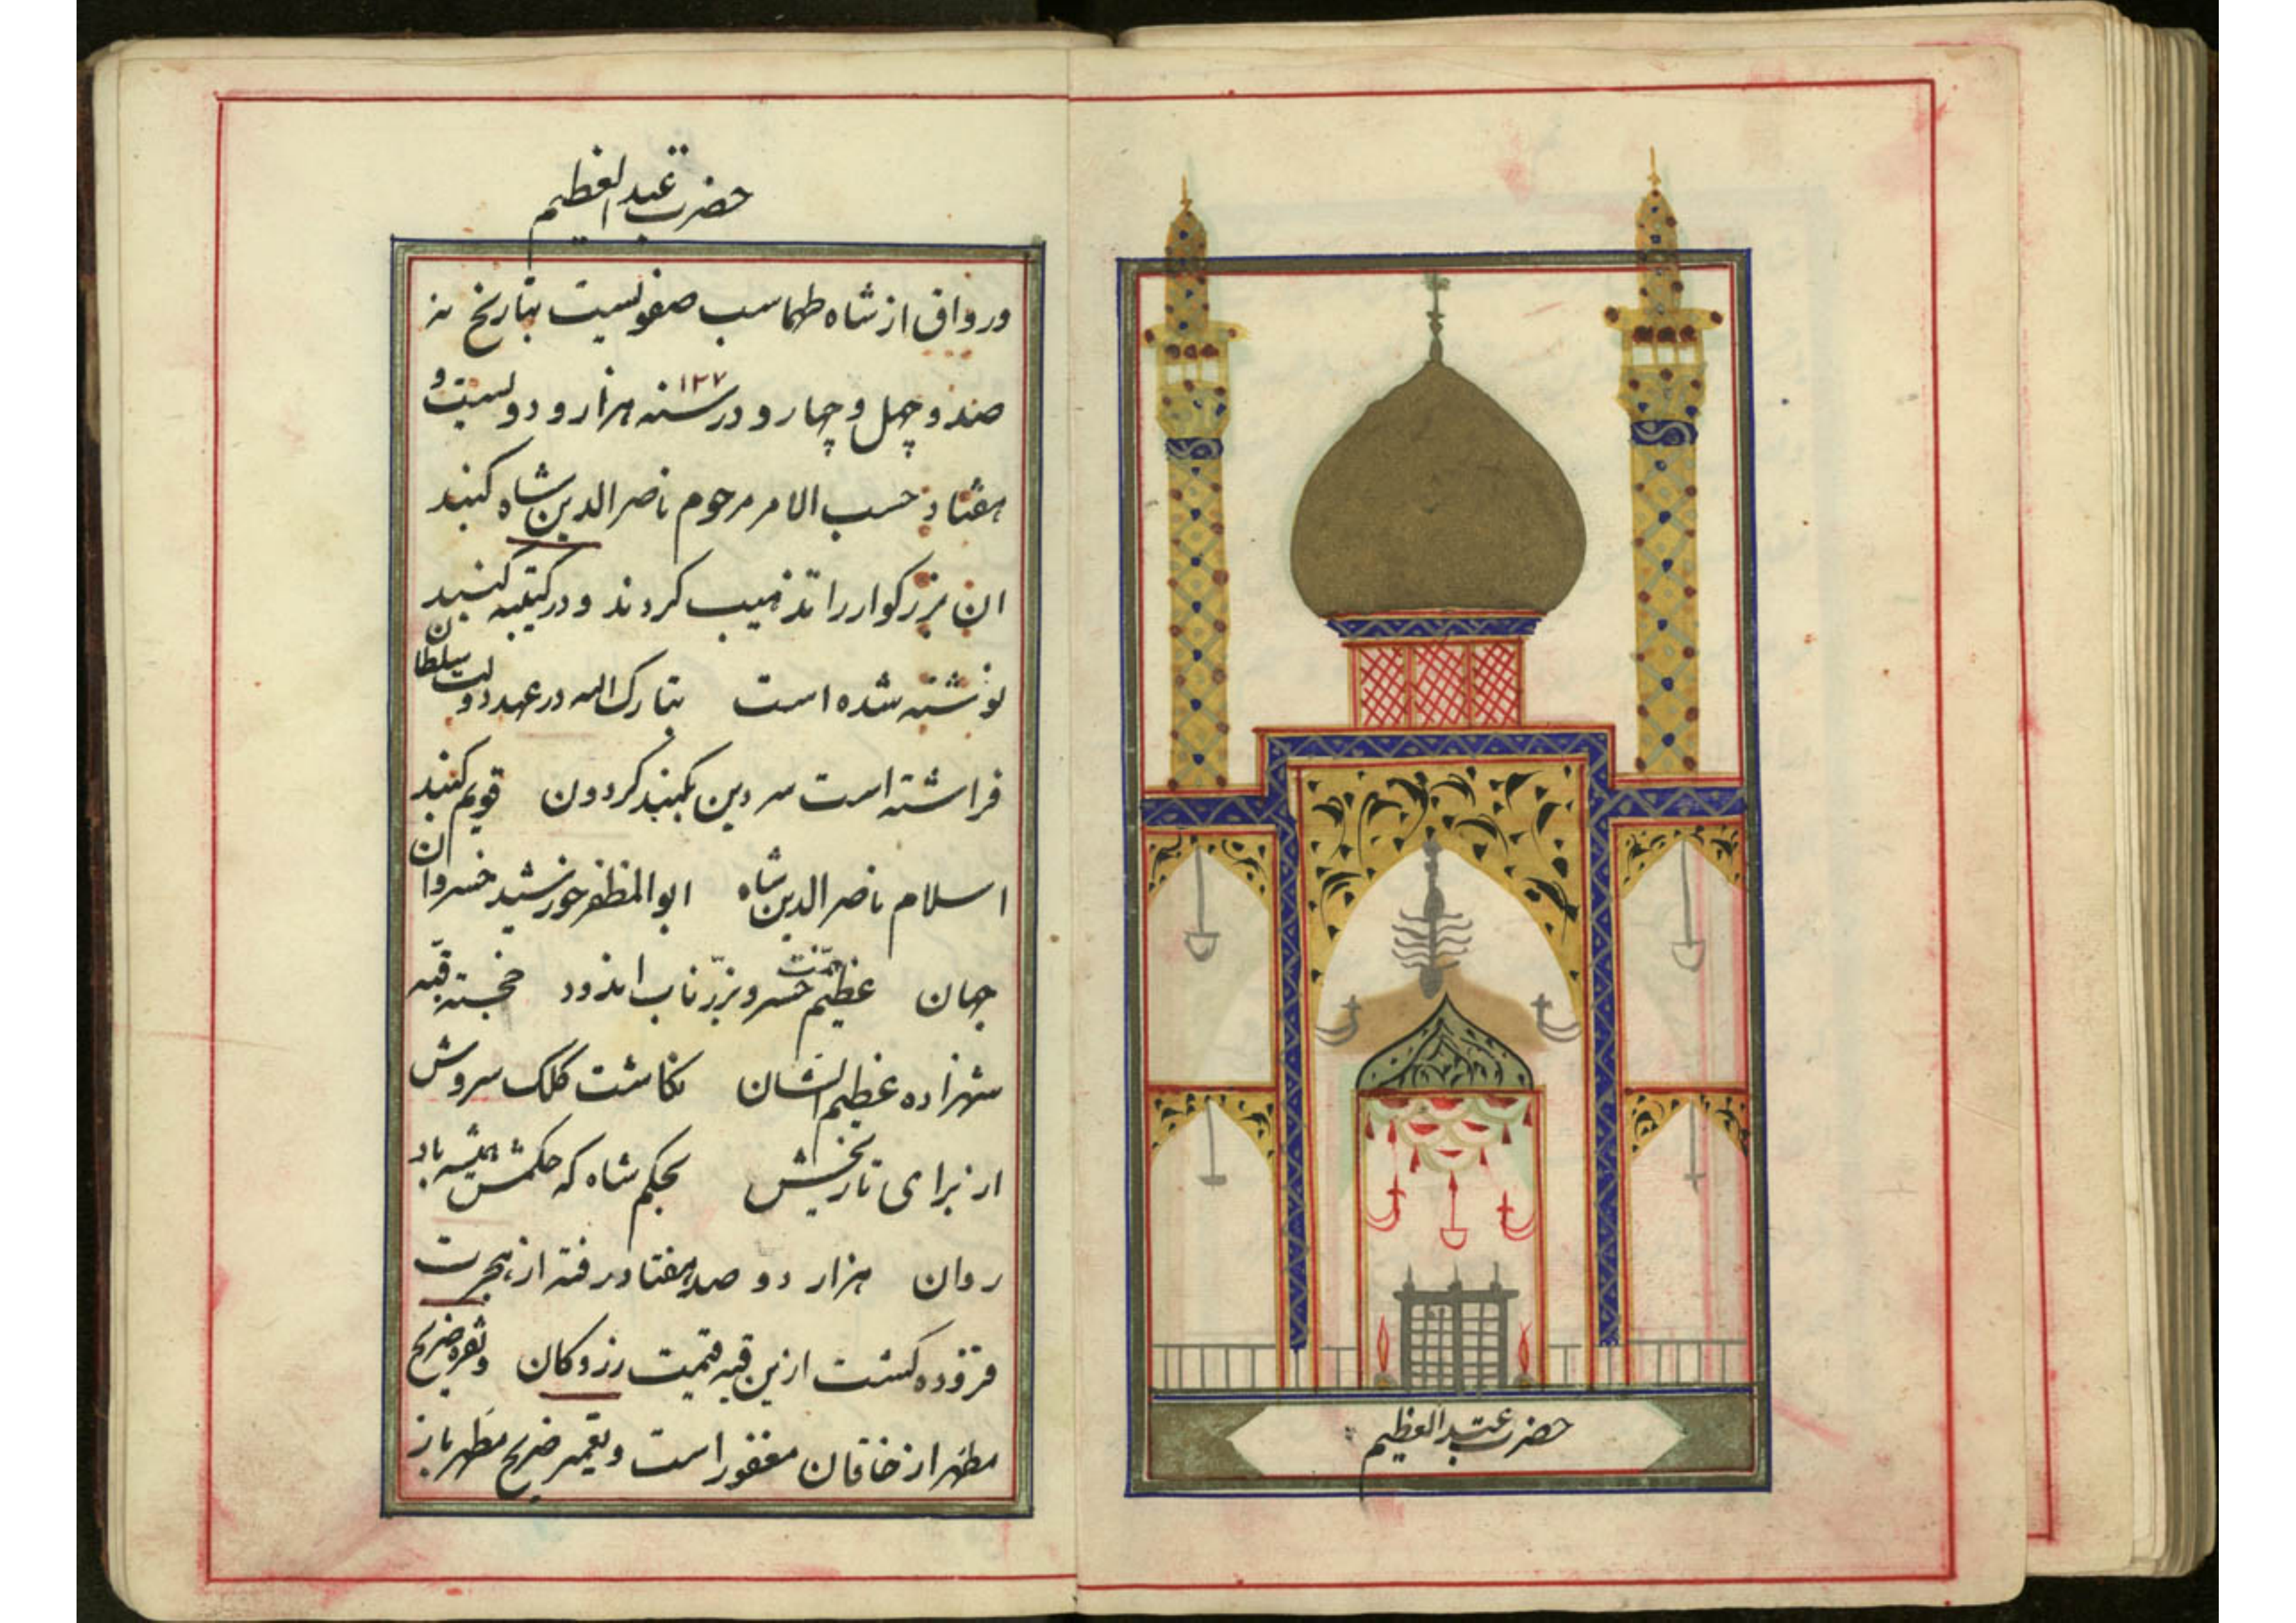 حضرت عبدالعظیم
و رواق از شاه طهماسب صفویست بتاریخ نه
صد و چهل و چهار و در سنه ۱۲۷ هزار و دویست و
هفتاد حسب الامر مرحوم ناصرالدین شاه کنبد
ان بزرکوار را تذهیب کردند و در کتیبه کنبد
نوشته شده است تبارک الله در عهد دولت سلطان
فراشته است سر دین بکنبد کردون قویم کنبد
اسلام ناصرالدین شاه ابوالمظفر خورشید خسروان
جهان عظیم خسرو بزرّ ناب اندود خجسته قبّه
شهزاده عظیم الشان نکاشت کلک سروش
از برای تاریخش بحکم شاه که حکمش همیشه باد
روان هزار دو صد هفتاد رفته از هجرت
فزوده کشت ازین قبه قیمت زر و کان و نقره ضریح
مطهر از خاقان مغفور است و تعمیر ضریح مطهر باز
حضرت عبدالعظیم